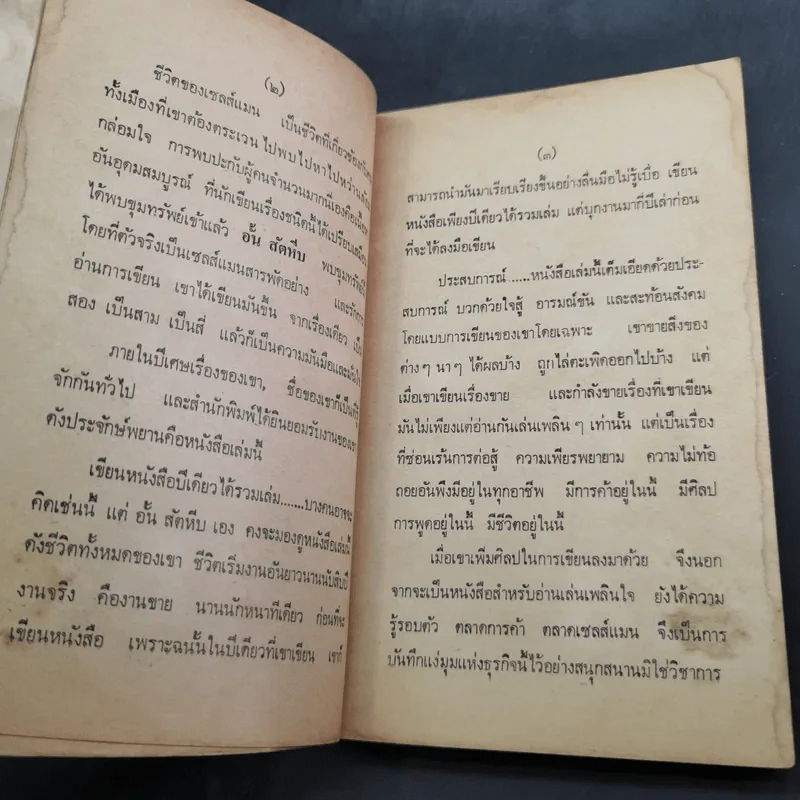 (๒)
ชีวิตของเซลส์แมน เป็นชีวิตที่เกี่ยวข้อง
ทั้งเมืองที่เขาต้องตระเวนไปพบไปหาไปหว่าน
กล่อมใจ การพบปะกับผู้คนจำนวนมากนี่เองคือ
อันอุดมสมบูรณ์ ที่นักเขียนเรื่องชนิดนี้ได้เปรียบ
ได้พบขุมทรัพย์เข้าแล้ว อั้น สัตหีบ พบขุมทรัพย์
โดยที่ตัวจริงเป็นเซลส์แมนสารพัดอย่าง และรัก
อ่านการเขียน เขาได้เขียนมันขึ้น จากเรื่องเดียว เป็น
สอง เป็นสาม เป็นสี่ แล้วก็เป็นความมันมือและ
ภายในปีเศษเรื่องของเขา, ชื่อของเขาก็เป็นที่รู้
จักกันทั่วไป และสำนักพิมพ์ได้ยินยอมรับงานของเขา
ดังประจักษ์พยานคือหนังสือเล่มนี้
เขียนหนังสือปีเดียวได้รวมเล่ม.......บางคนอาจจะ
คิดเช่นนี้ แต่ อั้น สัตหีบ เอง คงจะมองดูหนังสือเล่มนี้
ดังชีวิตทั้งหมดของเขา ชีวิตเริ่มงานอันยาวนานนับสิบปี
งานจริง คืองานขาย นานนักหนาทีเดียว ก่อนที่จะ
เขียนหนังสือ เพราะฉนั้นในปีเดียวที่เขาเขียน เขาก็
(๓)
สามารถนำมันมาเรียบเรียงขึ้นอย่างลื่นมือไม่รู้เบื่อ เขียน
หนังสือเพียงปีเดียวได้รวมเล่ม แต่บุกงานมากี่ปีเล่าก่อน
ที่จะได้ลงมือเขียน
ประสบการณ์ .....หนังสือเล่มนี้เต็มเอียดด้วยประ-
สบการณ์ บวกด้วยใจสู้ อารมณ์ขัน และสะท้อนสังคม
โดยแบบการเขียนของเขาโดยเฉพาะ เขาขายสิ่งของ
ต่าง ๆ นา ๆ ได้ผลบ้าง ถูกไล่ตะเพิดออกไปบ้าง แต่
เมื่อเขาเขียนเรื่องขาย และกำลังขายเรื่องที่เขาเขียน
มันไม่เพียงแต่อ่านกันเล่นเพลิน ๆ เท่านั้น แต่เป็นเรื่อง
ที่ซ่อนเร้นการต่อสู้ ความเพียรพยายาม ความไม่ท้อ
ถอยอันพึงมีอยู่ในทุกอาชีพ มีการค้าอยู่ในนี้ มีศิลป
การพูดอยู่ในนี้ มีชีวิตอยู่ในนี้
เมื่อเขาเพิ่มศิลปในการเขียนลงมาด้วย จึงนอก
จากจะเป็นหนังสือสำหรับอ่านเล่นเพลินใจ ยังได้ความ
รู้รอบตัว ตลาดการค้า ตลาดเซลส์แมน จึงเป็นการ
บันทึกแง่มุมแห่งธุรกิจนี้ไว้อย่างสนุกสนานมิใช่วิชาการ